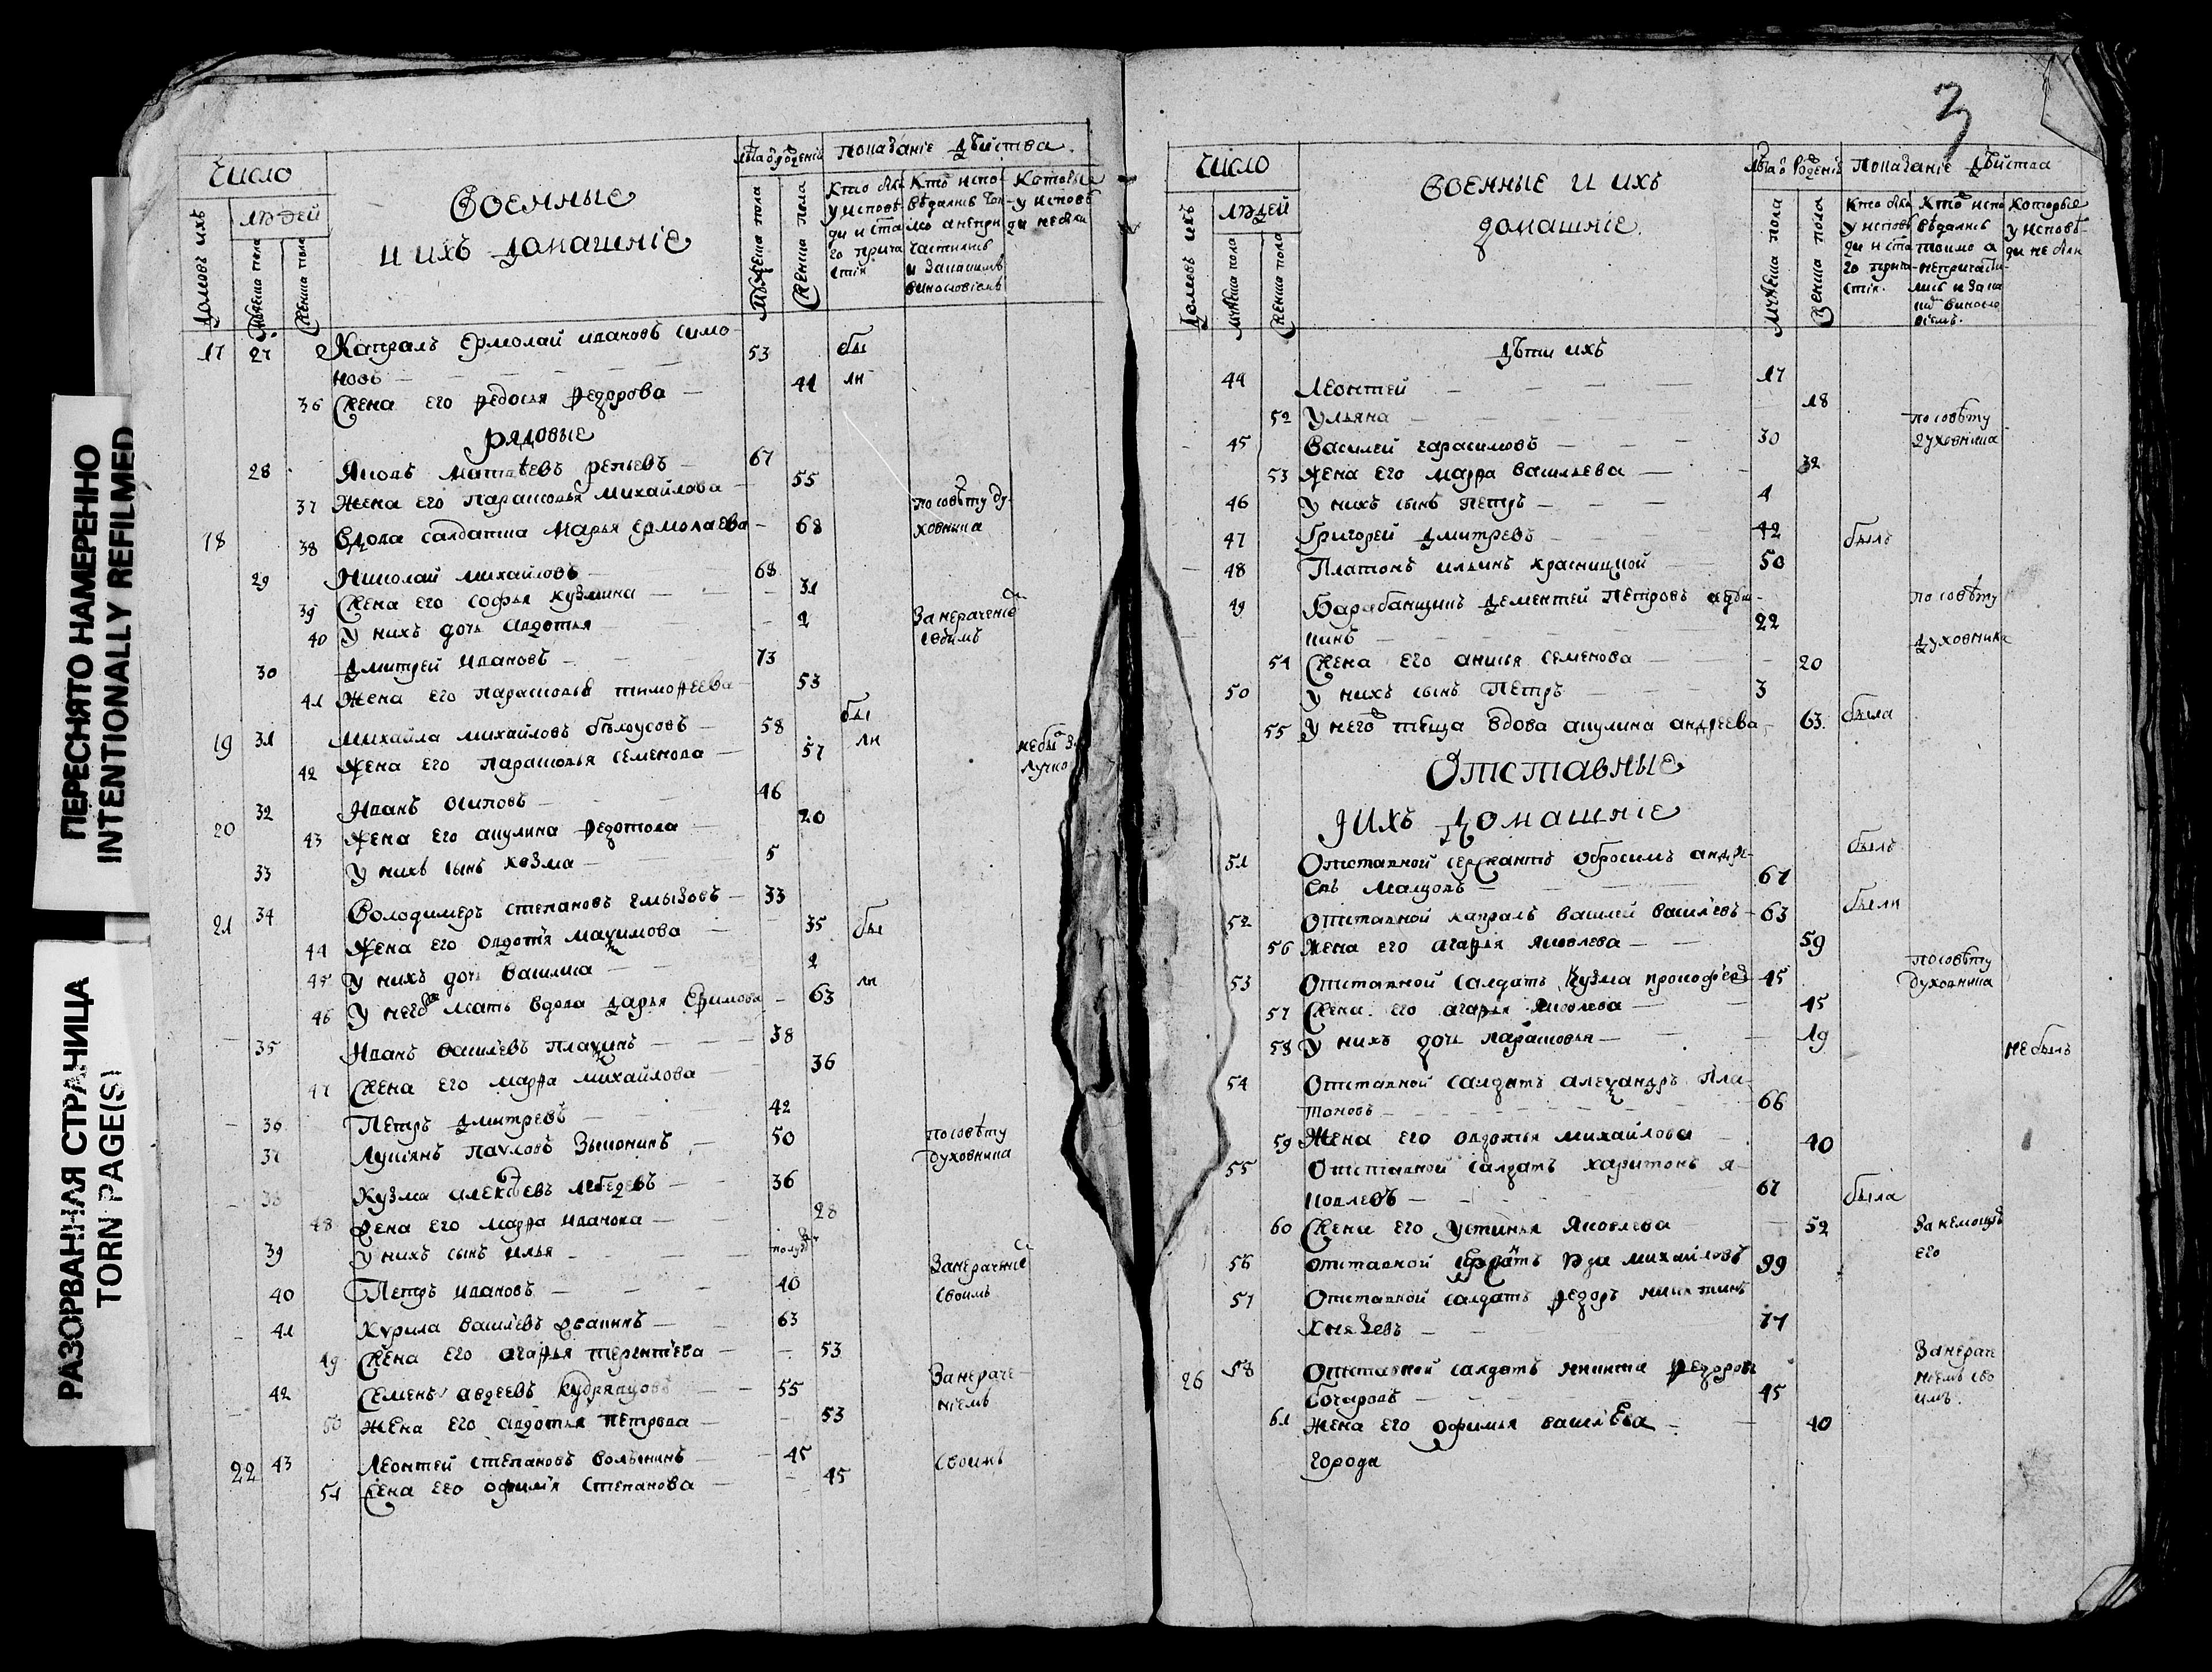 ПЕРЕСНЯТО НАМЕРЕННО
INTENTIONALLY REFILMED
РАЗОРВАННАЯ СТРАНИЦА
TORN PAGE(S)
Число
Домовъ ихъ
людей
Мужеска пола
Женска пола
Военные
и ихъ домашніе
Лѣта от рожденій
Мужеска пола
Женска пола
Показаніе дѣйства.
Кто были у исповѣди и стаго причастія
Кто исповѣдались токмо а непричастились и за какимъ винословіемъ
Которые у исповѣди небыли
17 27 Капралъ Ермолай Ивановъ Симо 53 бы
новъ
36 Жена его Ѳедосья Ѳедорова 41 ли
рядовые
28 Яковъ Матвѣевъ Репьевъ 67
37 Жена его Парасковья Михайлова 55 по совѣту ду-
18 38 Вдова салдатка Марья Ермолаева 68 ховника
29 Николай Михайловъ 68
39 Жена его Софья Кузмина 31
40 У нихъ дочь Авдотья 2 За нераченіе
своимъ
30 Дмитрей Ивановъ 73
41 Жена его Парасковья Тимоѳеева 53
19 31 Михайла Михайловъ Бѣлоусовъ 58 бы
42 Жена его Парасковья Семенова 57 ли
32 Иванъ Осиповъ 46
20 43 Жена его Акулина Ѳедотова 20
33 У нихъ сынъ Козма 5
21 34 Володимеръ Степановъ 33
44 Жена его Овдотья Маѯимова 35 бы
45 У нихъ дочь Василиса 2 ли
46 У него мать вдова Дарья Еѳимова 63
35 Иванъ Васильевъ 38
47 Жена его Марѳа Михайлова 36
36 Петръ Дмитревъ 42
37 Лукіянъ Павловъ 50 по совѣту
духовника
38 Кузма Алексѣевъ Лебедевъ 36
48 Жена его Марѳа Иванова 28
39 У нихъ сынъ Илья
40 Петръ Ивановъ 40 За нераченіе
своимъ
41 Курила Васильевъ 63
49 Жена его Агаѳья Терентьева 53
42 Семенъ Авдеевъ Кудрявцовъ 55 За нераче-
ніемъ
50 Жена его Авдотья Петрова 53
22 43 Леонтей Степановъ Волынинъ 45 своимъ
51 Жена его Офимья Степанова 45
3
Число
Домовъ ихъ
людей
Мужеска пола
Женска пола
Военные и ихъ
домашніе.
Лѣта от рожденія
Мужеска пола
Женска пола
Показаніе дѣйства
Кто были у исповѣди и стаго причастія.
Кто исповѣдались токмо а непричастились и за каким винословіемъ.
Которые у исповѣди не были
Дѣти ихъ
44 Леонтей 17
52 Ульяна 18 по совѣту
45 Василей Гарасимовъ 30 духовника
53 Жена его Марѳа Васильева 32
46 У нихъ сынъ Петръ 4
47 Григорей Дмитревъ 42 былъ
48 Платонъ Ильинъ Красницкой 50
49 Барабанщикъ Дементей Петровъ по совѣту
кинъ 22
духовника
54 Жена его Анисья Семенова 20
50 У нихъ сынъ Петръ 3
55 У него теща вдова Акулина Андреева 63. была
Отставные
и ихъ домашніе
51 Отставной сержантъ Обросимъ Андре- былъ
евъ 67
52 Отставной капралъ Василей Васильевъ 63 были
56 Жена его Агаѳья Яковлева 59
53 Отставной салдатъ Кузма Прокофьевъ 45 по совѣту
духовника
57 Жена его Агаѳья Яковлева 45
58 У нихъ дочь Парасковья 19
не былъ
54 Отставной салдатъ Алеѯандръ Пла-
тоновъ 66
59 Жена его Овдотья Михайлова 40
55 Отставной салдатъ Харитонъ Я-
ковлевъ 67
60 Жена его Устинья Яковлева 52 была
За немощью
его
56 Отставной Михайловъ 99
57 Отставной салдатъ Ѳедоръ Никитинъ
Князевъ 77
26 58 Отставной салдатъ Никита Ѳедоровъ За нерачe
Бочаровъ 45 ніемъ сво
имъ.
61 Жена его Офимья Васильева 40
города